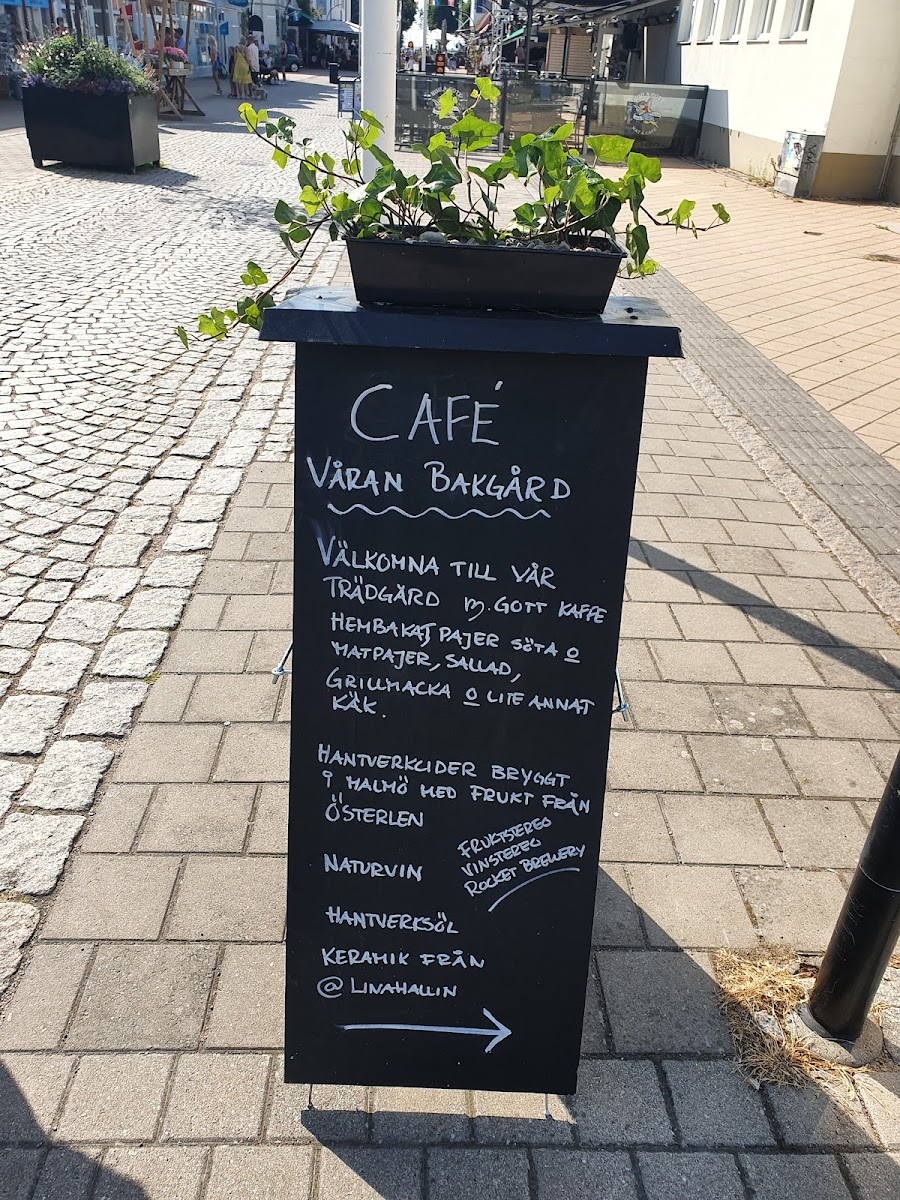 CAFÉ
VÅRAN BAKGÅRD
VÄLKOMNA TILL VÅR
TRÄDGÅRD m. GOTT KAFFE
HEMBAKAT, PAJER SÖTA O
MATPAJER, SALLAD,
GRILLMACKA O LITE ANNAT
KÄK.
HANTVERKCIDER BRYGGT
I MALMÖ MED FRUKT FRÅN
ÖSTERLEN
FRUKTSTEREO
VINSTEREO
ROCKET BREWERY
NATURVIN
HANTVERKSÖL
KERAMIK FRÅN
@LINAHALLIN